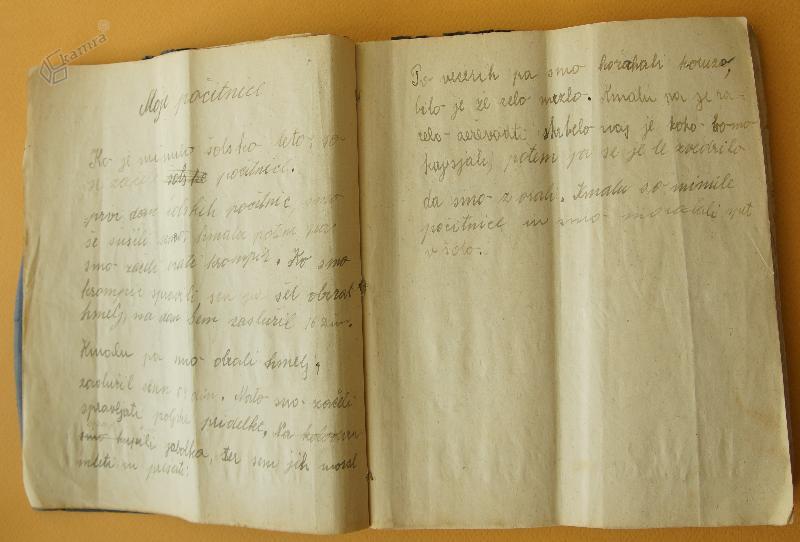 kamra
Moje počitnice
Ko je minulo šolsko leto, so
se začele šolske počitnice.
prvi dan šolskih počitnic smo
še sušili seno, kmalu potem pa
smo začeli orati krompir. Ko smo
krompir spravili, sem pa šel obirat
hmelj, na dan sem zaslužil 16 din.
Kmalu pa smo obrali hmelj,
zaslužil sem din. Nato smo začeli
spravljati poljske pridelke. Na
smo kupili jabolka, ter sem jih moral
mleti in prešati.
Po večerih pa smo kožuhali koruzo,
bilo je že zelo mrzlo. Kmalu pa je za-
čelo deževati skrbelo nas je kako bomo
potem pa se je le zvedrilo
da smo z orali. Kmalu so minule
počitnice in smo morali spet
v šolo.